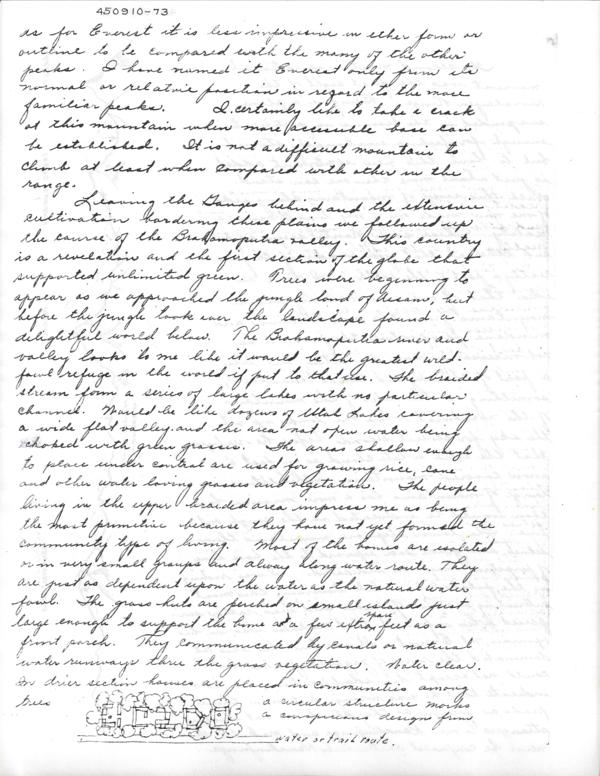 450910-73
as for Everest it is less impressive in either form or
outline to be compared with the many of the other
peaks. I have named it Everest only from its
normal or relative position in regard to the more
familiar peaks. I certainly like to take a crack
at this mountain when more accessible base can
be established. It is not a difficult mountain to
climb at least when compared with other in the
range.
Leaving the Ganges behind and the extensive
cultivation bordering these plains we followed up
the course of the Brahamaputra valley. This country
is a revelation and the first section of the globe that
supported unlimited green. Trees were beginning to
appear as we approached the jungle land of Assam, but
before the jungle took over the landscape found a
delightful world below. The Brahamaputra river and
valley looks to me like it would be the greatest wild-
fowl refuge in the world if put to that use. The braided
stream form a series of large lakes with no particular
channel. Would be like dozens of Utah Lakes covering
a wide flat valley and the area not open water being
choked with green grasses. The areas shallow enough
to place under control are used for growing rice, cane
and other water loving grasses and vegetation. The people
living in the upper braided area impress me as being
the most primitive because they have not yet formed the
community type of living. Most of the homes are isolated
or in very small groups and always along water route. They
are just as dependent upon the water as the natural water
fowl. The grass huts are perched on small islands just
large enough to support the home at a few spare feet as a
front porch. They communicated by canals or natural
water runways thru the grass vegetation. Water clear.
In drier section houses are placed in communities among
trees a circular structure marks
a conspicuous design from
water or trail route.